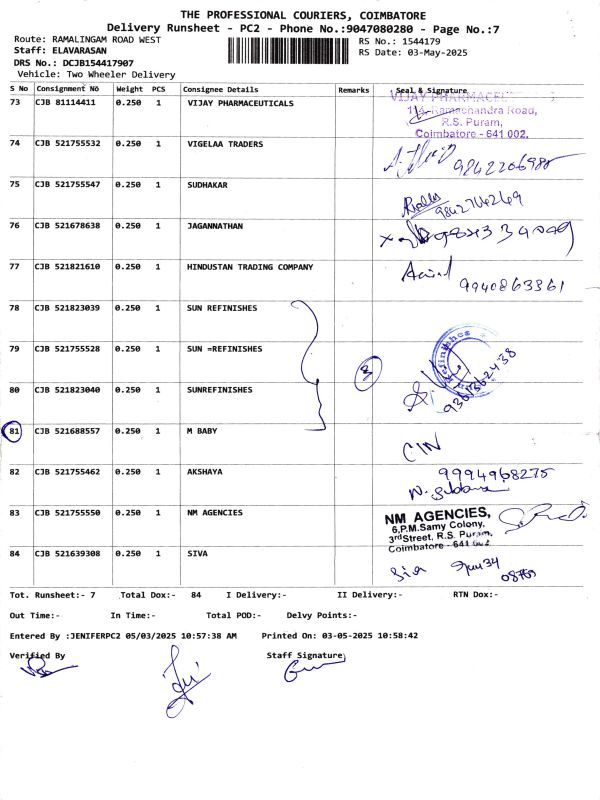 THE PROFESSIONAL COURIERS, COIMBATORE
Delivery Runsheet - PC2 - Phone No.:9047080280 - Page No.:7
Route: RAMALINGAM ROAD WEST
Staff: ELAVARASAN
DRS No.: DCJB154417907
Vehicle: Two Wheeler Delivery
RS No.: 1544179
RS Date: 03-May-2025
S No Consignment No Weight PCS Consignee Details Remarks Seal & Signature
73 CJB 81114411 0.250 1 VIJAY PHARMACEUTICALS
VIJAY PHARMACEU
Ramachandra Road,
R.S. Puram,
Coimbatore - 641 002.
74 CJB 521755532 0.250 1 VIGELAA TRADERS
9842206985
75 CJB 521755547 0.250 1 SUDHAKAR
9842704249
76 CJB 521678638 0.250 1 JAGANNATHAN
77 CJB 521821610 0.250 1 HINDUSTAN TRADING COMPANY
9940863361
78 CJB 521823039 0.250 1 SUN REFINISHES
79 CJB 521755528 0.250 1 SUN =REFINISHES
3
Refinishes
9361362438
80 CJB 521823040 0.250 1 SUNREFINISHES
81 CJB 521688557 0.250 1 M BABY
CIN
82 CJB 521755462 0.250 1 AKSHAYA
9994968275
83 CJB 521755550 0.250 1 NM AGENCIES
NM AGENCIES,
6,P.M.Samy Colony,
3rdStreet, R.S. Puram,
Coimbatore - 641 002.
84 CJB 521639308 0.250 1 SIVA
Sia
08769
Tot. Runsheet:- 7 Total Dox:- 84 I Delivery:- II Delivery:- RTN Dox:-
Out Time:- In Time:- Total POD:- Delvy Points:-
Entered By :JENIFERPC2 05/03/2025 10:57:38 AM Printed On: 03-05-2025 10:58:42
Verified By Staff Signature